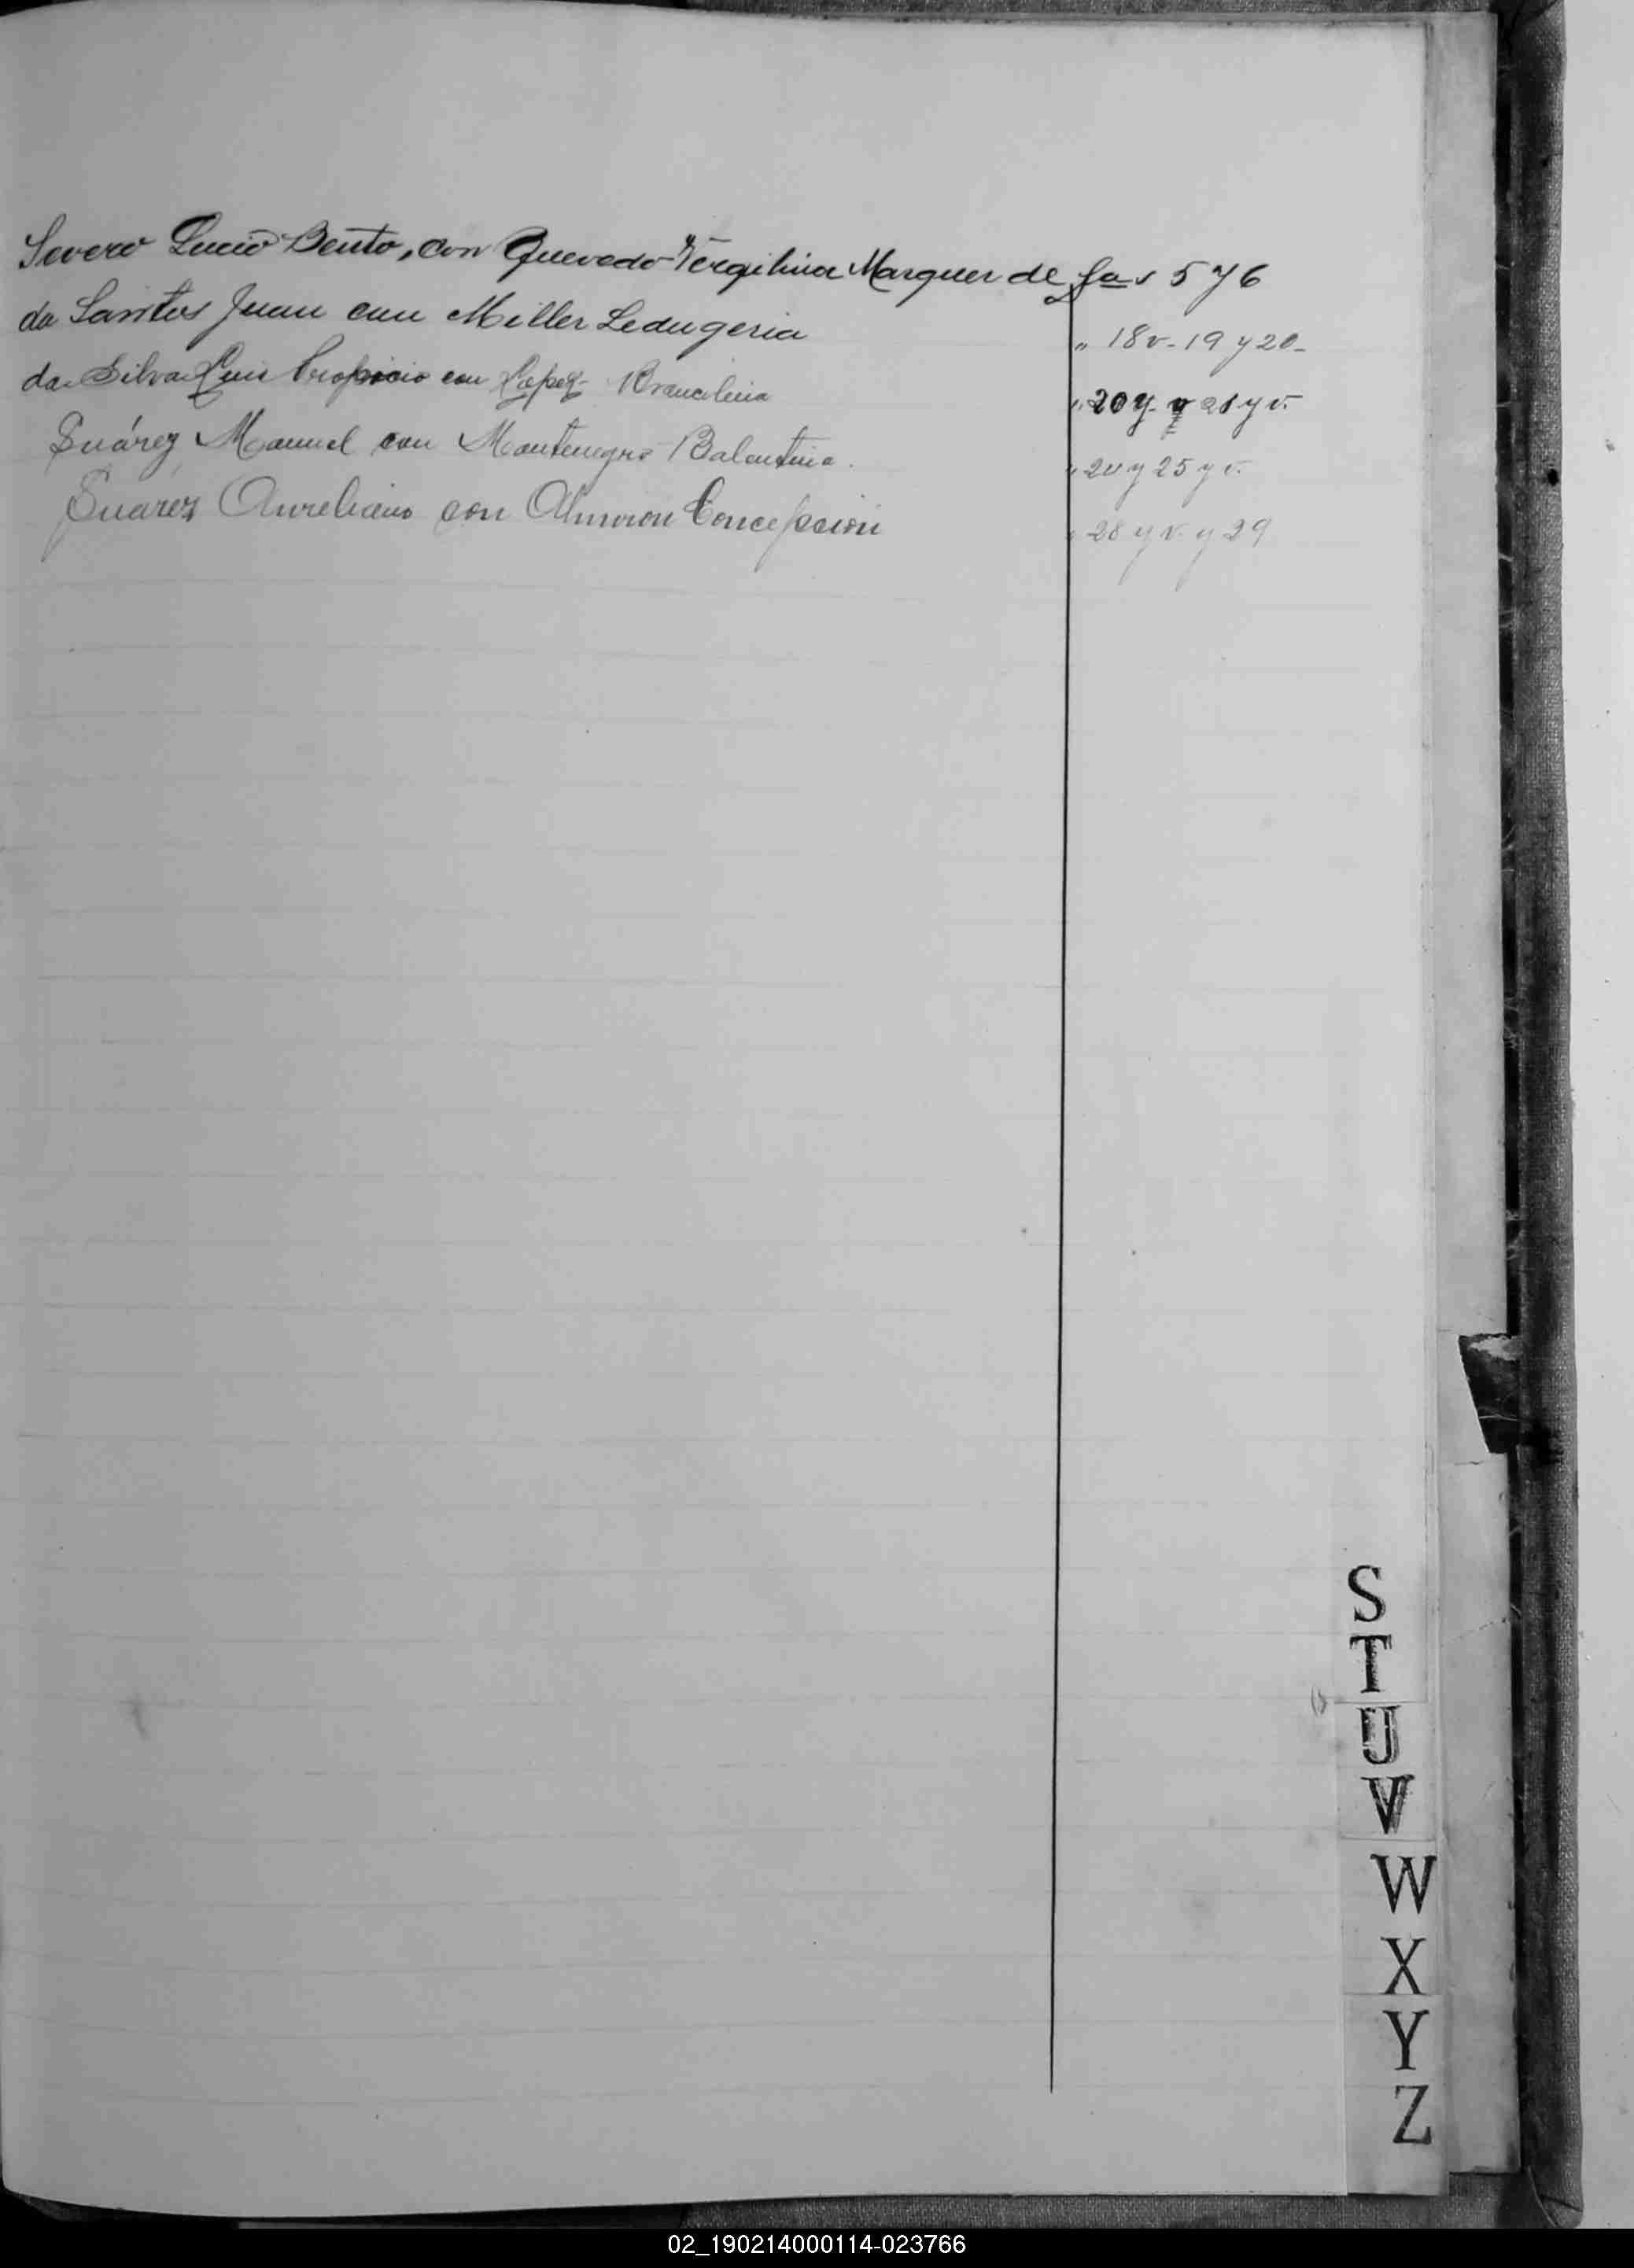 Severo Lucio Bento, con Quevedo Vergilina Marques de fas 5 y 6
da Santos Juan con Miller Ledugeria „ 18 v - 19 y 20 -
da Silva Luis Propicio con Lopez Brancilina „ 20 y v 21 y v.
Suárez Manuel con Montenegro Balentina. „ 24 y 25 y v.
Suarez Aureliano con Almiron Concepcion „ 28 y v. y 29
S
T
U
V
W
X
Y
Z
02_190214000114-023766